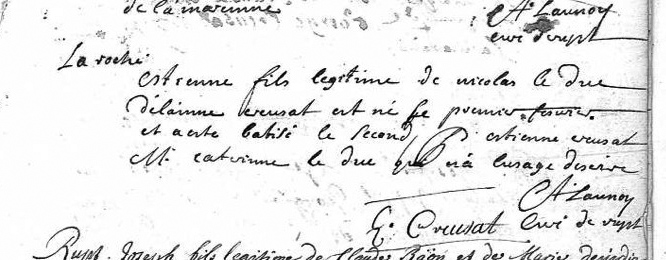 de la marenne
A Launoy
curé de rupt
La roche
estienne fils legitime de nicolas le duc
délainne creusat est né le premier fevrier
et a esté batisé le second P estienne creusat
M. caterinne le duc qui n'a l'usage d'escrire
A Launoy
E. Creusat curé de rupt
Rupt Joseph fils legitime de Claude et de Marie